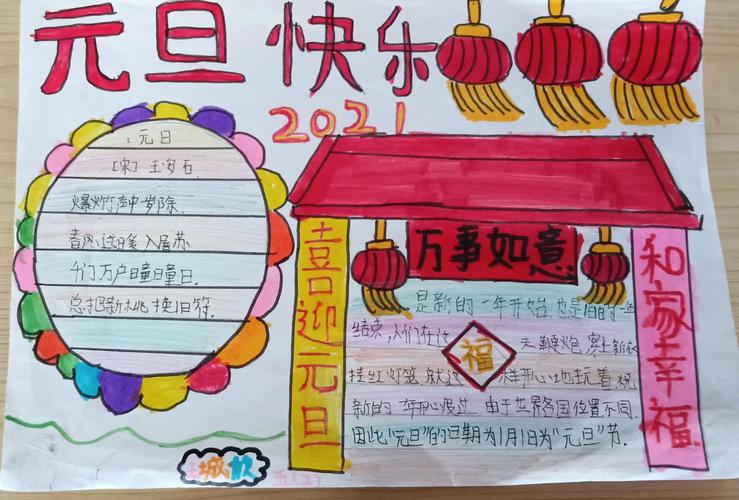 元旦快乐
2021
元日
[宋] 王安石
爆竹声中一岁除
春风送暖入屠苏
千门万户曈曈日
总把新桃换旧符
喜迎元旦
万事如意
和家幸福
福
是新的一年开始,也是旧的一年
结束,人们在这 天鞭炮,穿上新衣
挂红灯笼 就这 样开心地玩着 祝
新的一年开心度过 由于世界各国位置不同.
因此"元旦"的日期为1月1日为"元旦"节.
城
五(2)